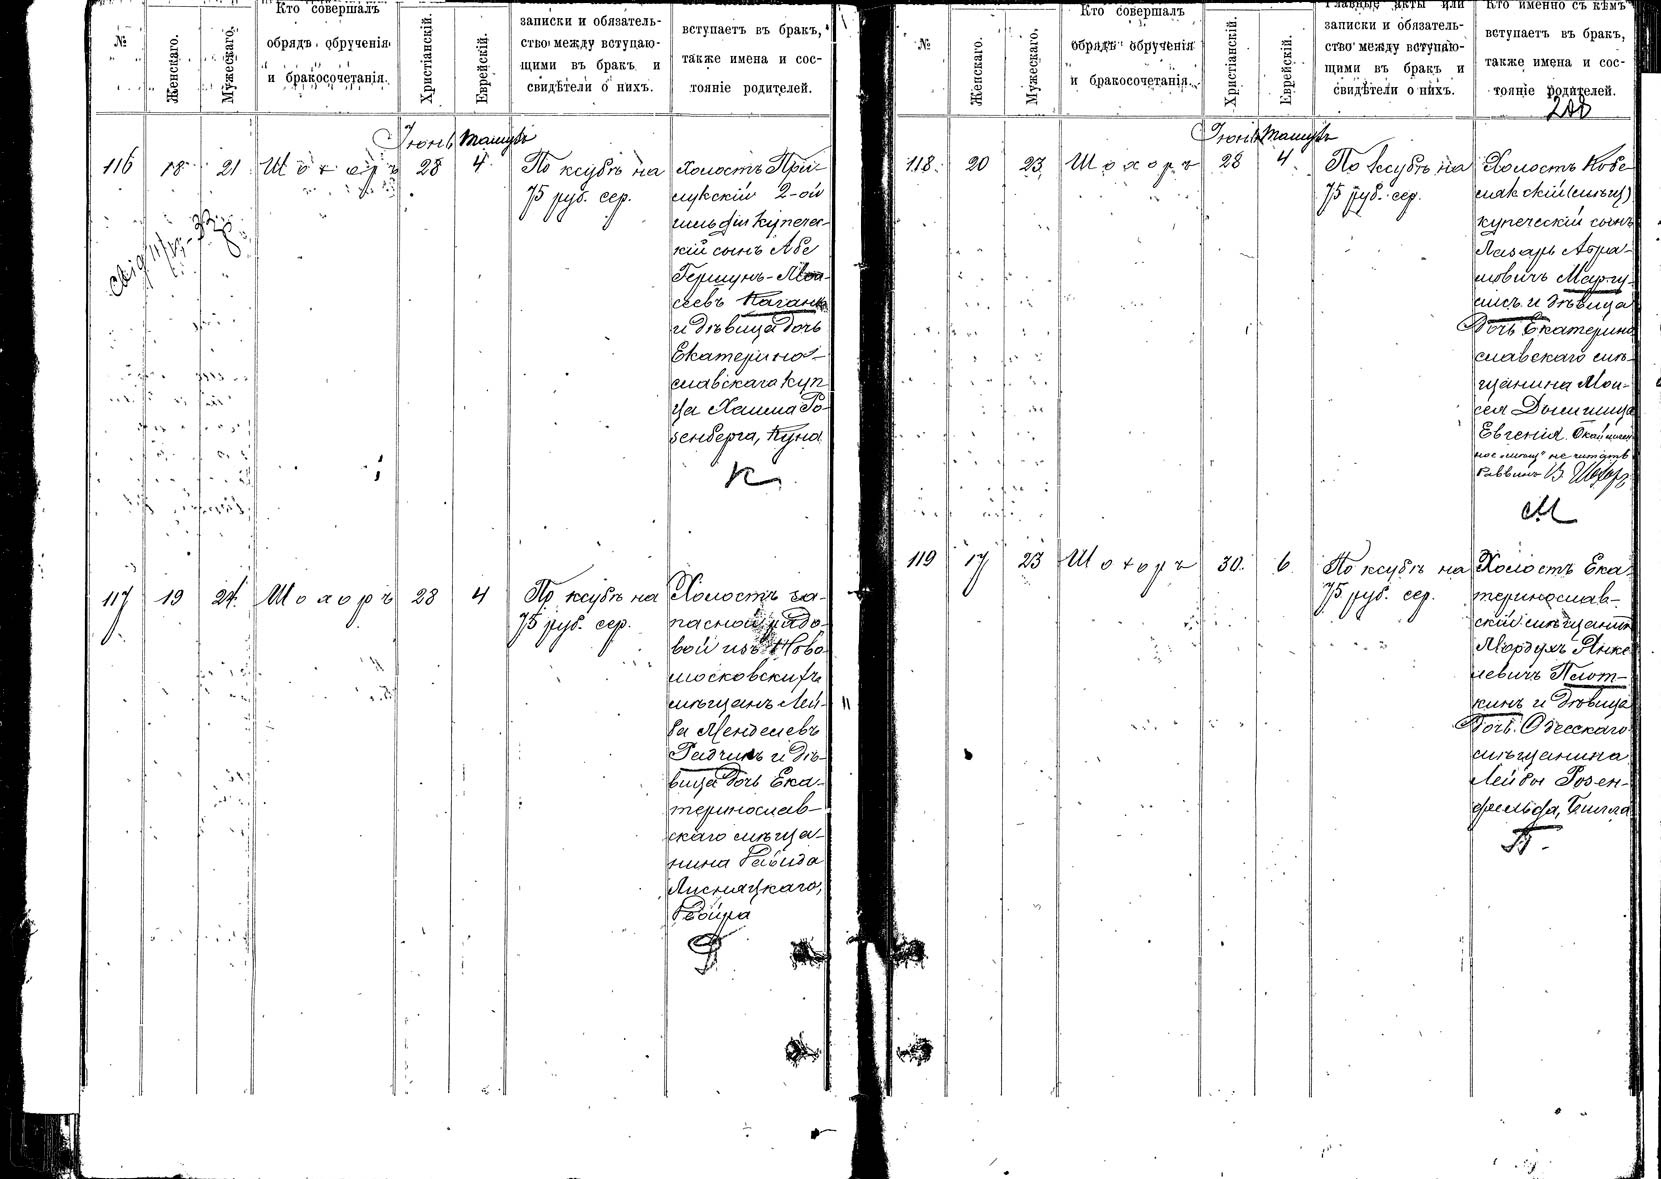 №
Женскаго.
Мужескаго.
Кто совершалъ
обрядъ обрученія
и бракосочетанія.
Христіанскій.
Еврейскій.
записки и обязатель-
ство между вступаю-
щими въ бракъ и
свидѣтели о нихъ.
вступаетъ въ бракъ,
также имена и сос-
тояніе родителей.
Іюнь Тамузъ
116 18 21 Шохоръ 28 4
По ксубѣ на
75 руб. сер.
Холостъ При-
лукскій 2-ой
гильдіи купечес-
кій сынъ Абе
Гершунъ-Мои-
сеевъ Каганъ
и дѣвица дочь
Екатерино-
славскаго куп-
ца Хаима Ро-
зенберга, Куна
К
117 19 24 Шохоръ 28 4
По ксубѣ на
75 руб. сер.
Холостъ за-
пасной рядо-
вой изъ Ново-
московскихъ
мѣщанъ Лей-
ба Менделевъ
и дѣ-
вица дочь Ека-
теринослав-
скаго мѣща-
нина Давида
Лисняцкаго,
Двойра
№
Женскаго.
Мужескаго.
Кто совершалъ
обрядъ обрученія
и бракосочетанія.
Христіанскій.
Еврейскій.
Главные акты или
записки и обязатель-
ство между вступаю-
щими въ бракъ и
свидѣтели о нихъ.
Кто именно съ кѣмъ
вступаетъ въ бракъ,
также имена и сос-
тояніе родителей.
208
Іюнь Тамузъ
118 20 23 Шохоръ 28 4
По ксубѣ на
75 руб. сер.
Холостъ Кобе-
лякскій (мѣщ)
купеческій сынъ
Лазарь Абра-
мовичъ Маргу-
лисъ и дѣвица
дочь Екатерино
славскаго мѣ-
щанина Мои-
сея
Евгенія.
не читать
Раввинъ В Шохоръ
М
119 17 23 Шохоръ 30. 6
По ксубѣ на
75 руб. сер.
Холостъ Ека-
теринослав-
скій мѣщанинъ
Мордухъ Янке
левичъ Плот-
кинъ и дѣвица
дочь Одесскаго
мѣщанина
Лейбы Розен-
фельда,
П.